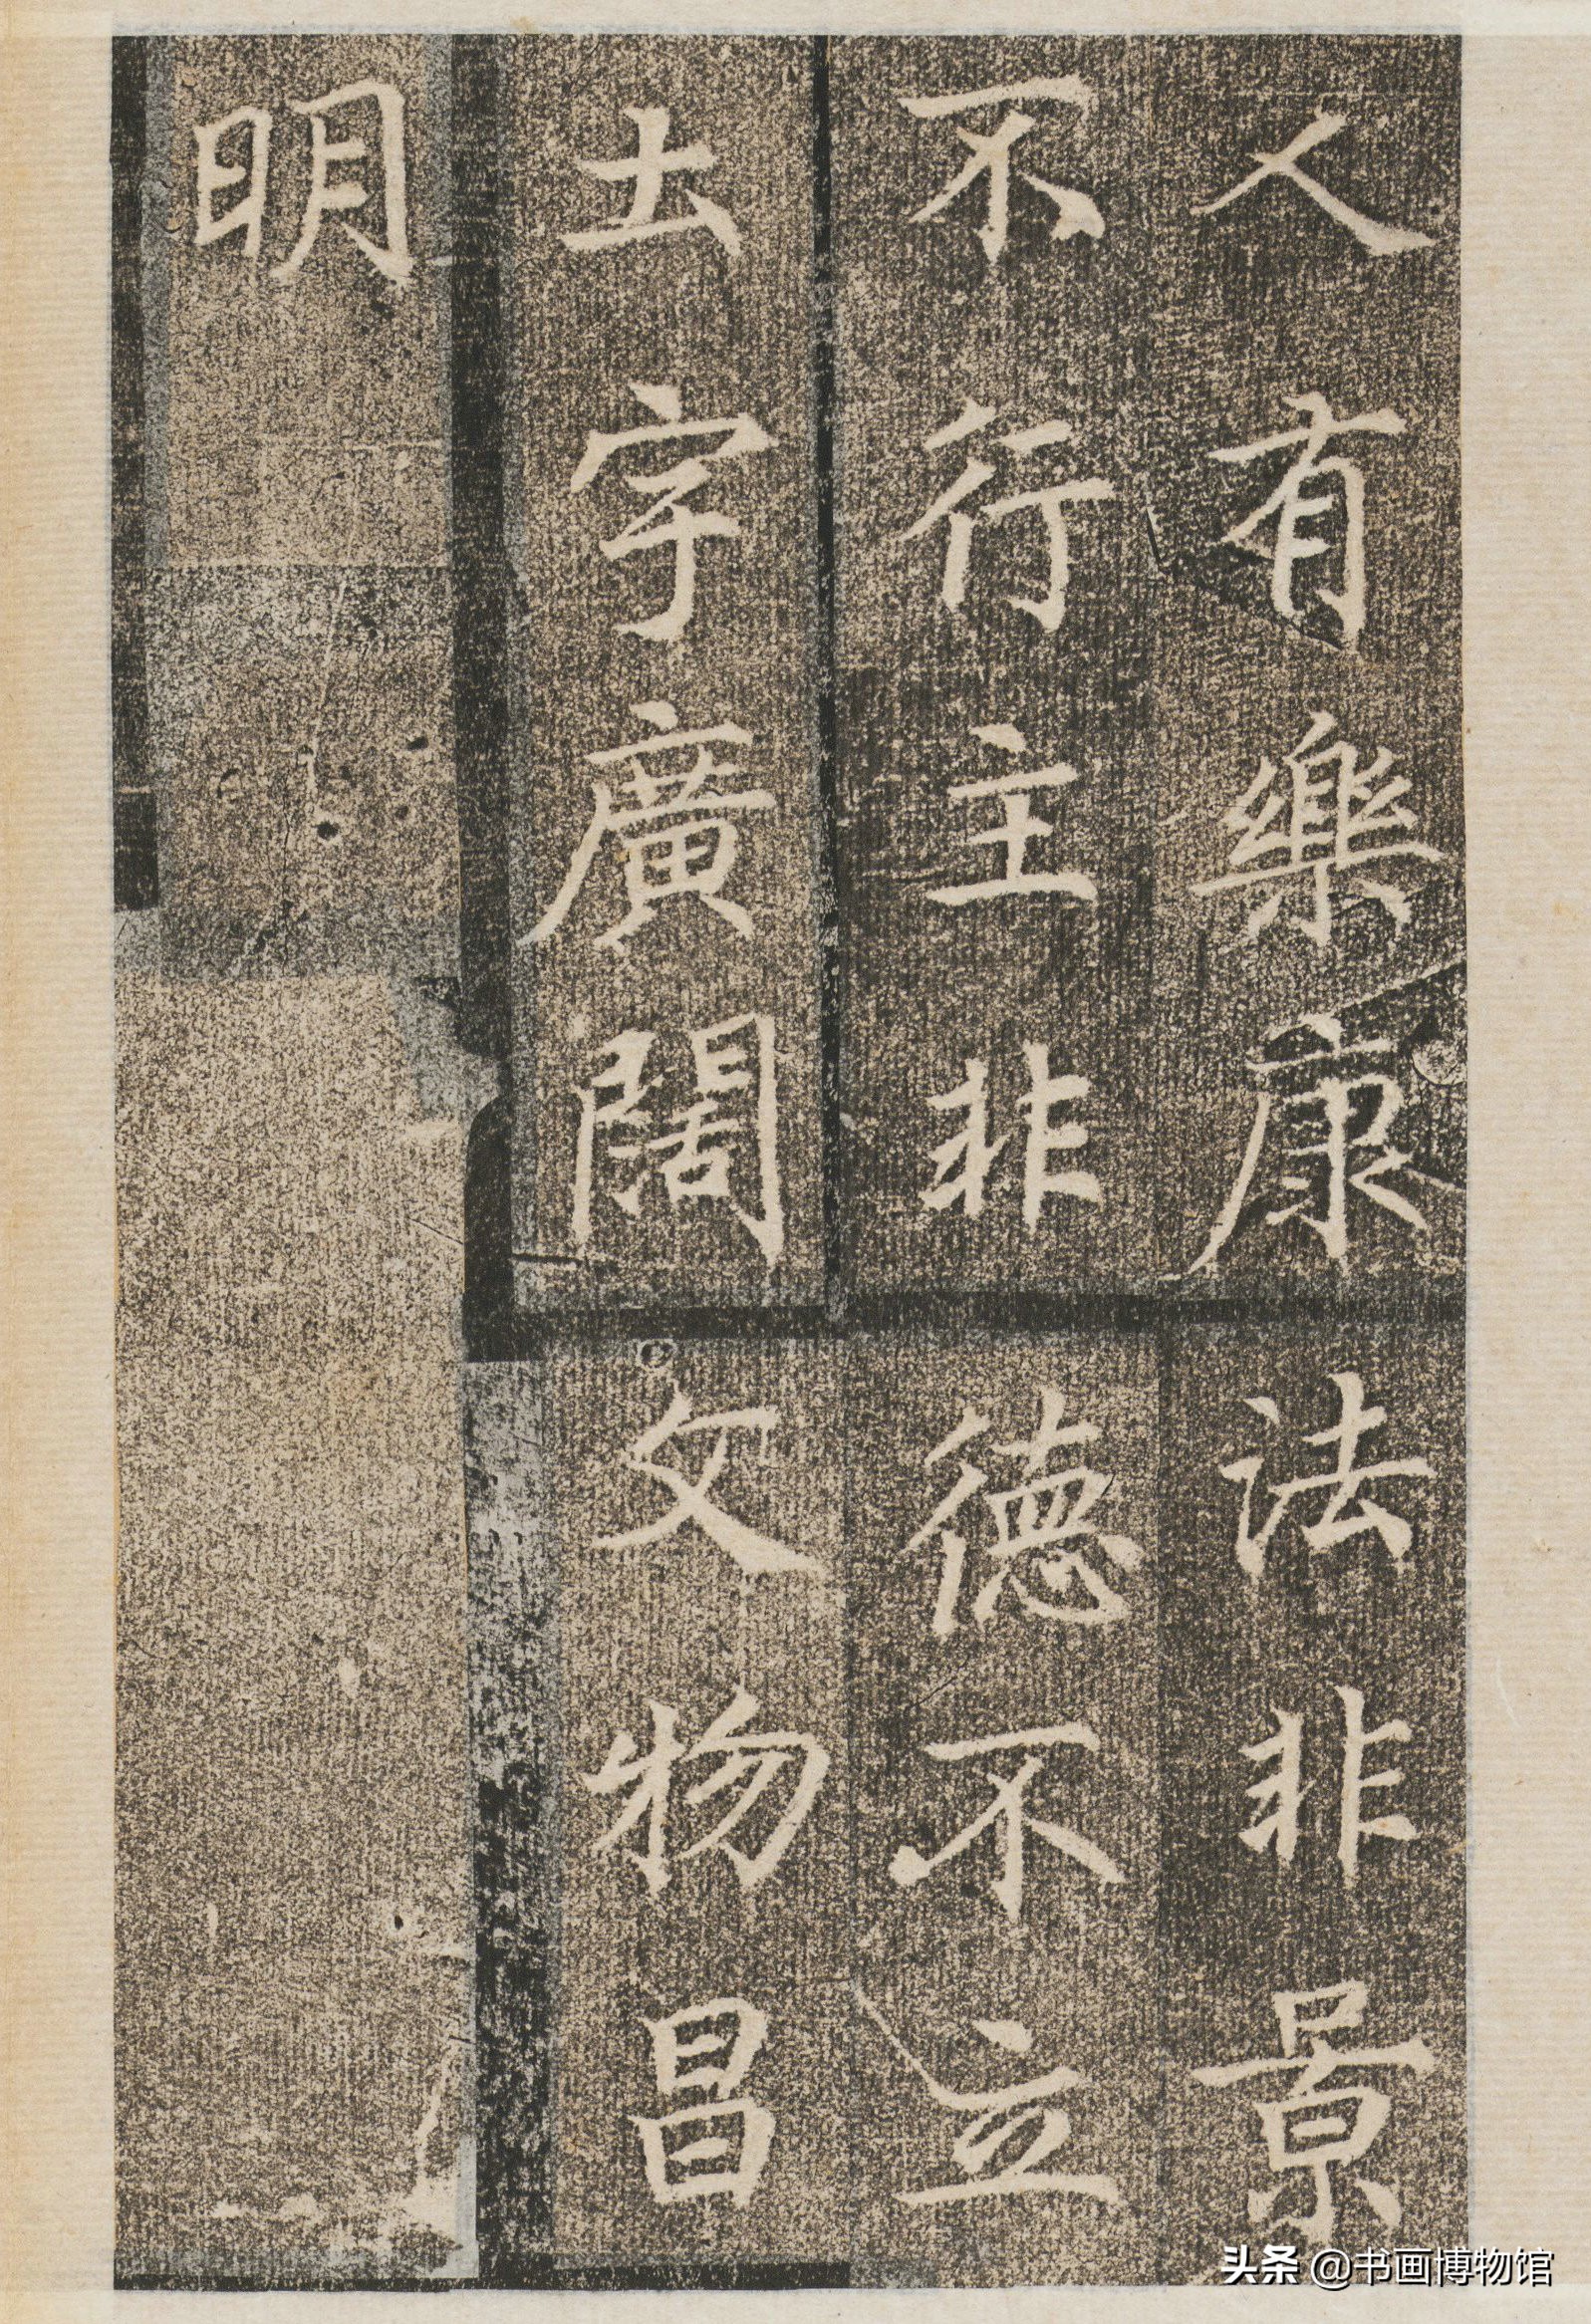 人有樂康法非景
不行主非德不立
土字廣闊文物昌
明
头条 @书画博物馆